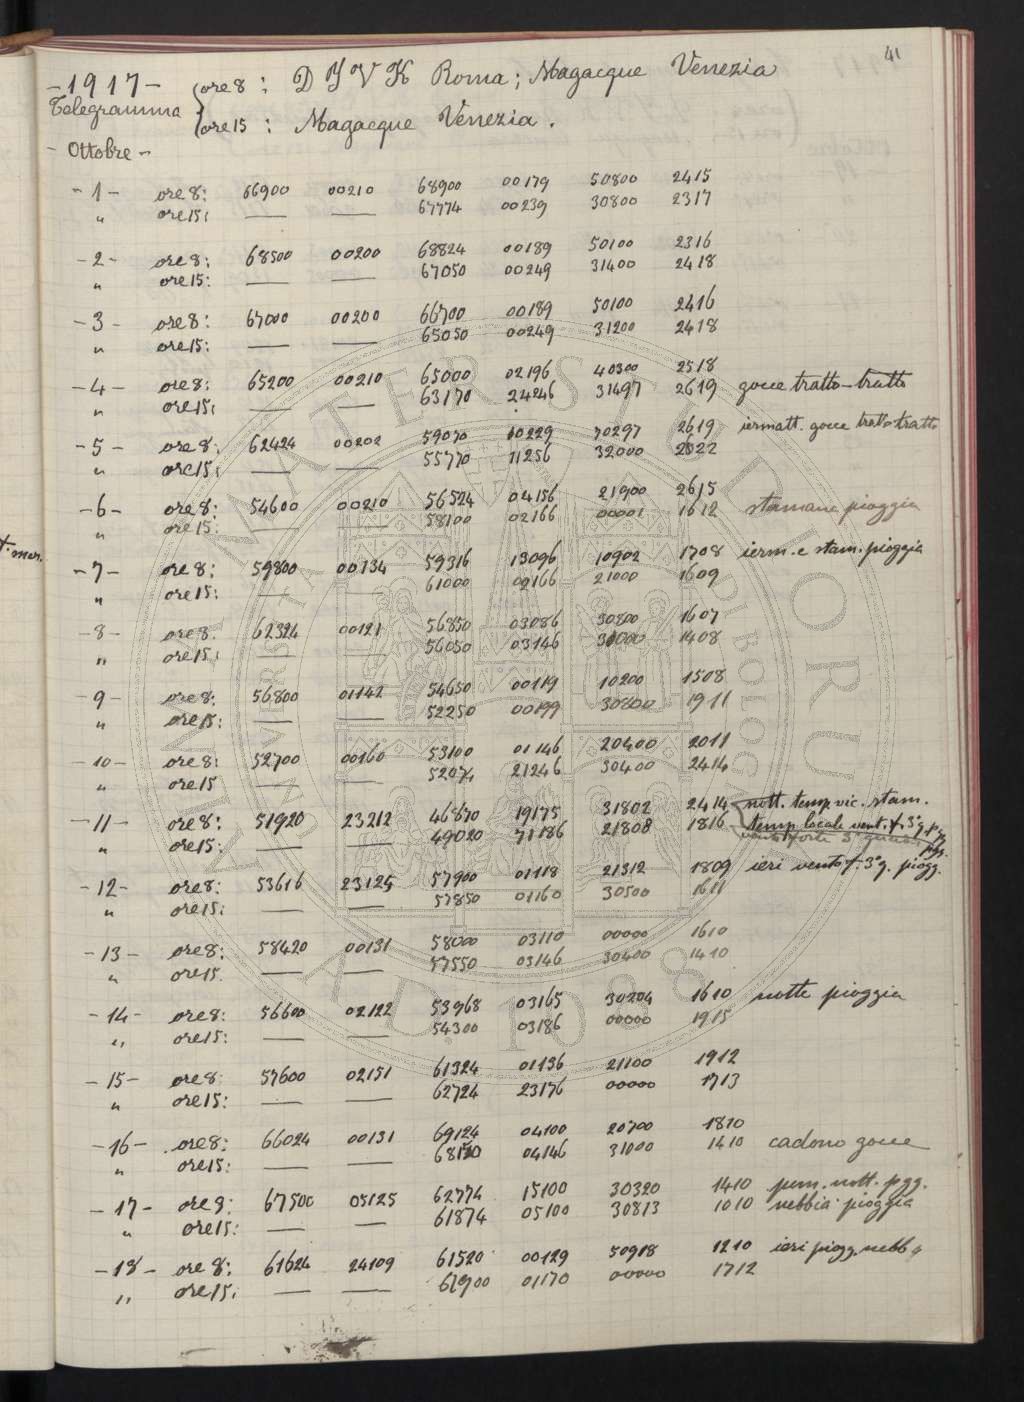 41
-1917- ore 8: D I V K Roma; Magacque Venezia
Telegramma
ore 15: Magacque Venezia.
- Ottobre -
-1- ore 8: 66900 00210 68900 00179 50800 2415
" ore 15: — — 67774 00239 30800 2317
-2- ore 8: 68500 00200 68824 00189 50100 2316
" ore 15: — — 67050 00249 31400 2418
-3- ore 8: 67000 00200 66700 00189 50100 2416
" ore 15: — — 65050 00249 31200 2418
-4- ore 8: 65200 00210 65000 02196 40300 2518
" ore 15: — — 63170 24246 31497 2619 gocce tratto-tratto
-5- ore 8: 62424 00202 59070 10229 70297 2619 iermatt. gocce tratto tratto
" ore 15: — — 55770 11256 32000 2522
-6- ore 8: 54600 00210 56524 04156 21900 2615 stamane pioggia
" ore 15: — — 58100 02166 00001 1612
-7- ore 8: 59800 00134 59316 13096 10902 1708 ierm. e stam. pioggia
" ore 15: — — 61000 02166 21000 1609
-8- ore 8: 62324 00121 56850 03086 30800 1607
" ore 15: — — 56050 03146 30000 1408
-9- ore 8: 56800 01142 54650 00119 10200 1508
" ore 15: — — 52250 00199 30800 1911
-10- ore 8: 52700 00160 53100 01146 20400 2011
" ore 15 — — 52074 21246 30400 2414
-11- ore 8: 51920 23212 46870 19175 31802 2414 nott. temp. vic. stam.
" ore 15: — — 49020 71186 21808 1816 temp. locale vent. f. 3°q. pgg.
-12- ore 8: 53616 23125 57900 01118 21312 1809 ieri vento f. 3°q. piogg.
" ore 15: — — 57850 01160 30500 1611
-13- ore 8: 58420 00131 58000 03110 00000 1610
" ore 15. — — 57550 03146 30400 1410
-14- ore 8: 56600 02122 53968 03165 30204 1610 notte pioggia
" ore 15: — — 54300 03186 00000 1915
-15- ore 8: 57600 02151 61324 01136 21100 1912
" ore 15: — — 62724 23176 00000 1713
-16- ore 8: 66024 00131 69124 04100 20700 1810
" ore 15: — — 68120 04146 31000 1410 cadono gocce
-17- ore 8: 67500 05125 62774 15100 30320 1410 pom. nott. pgg.
" ore 15: — — 61874 05100 30813 1010 nebbia pioggia
-18- ore 8: 61624 24109 61520 00129 50918 1210 ieri piogg. nebb.
" ore 15: — — 61900 01170 00000 1712
ALMA MATER STUDIORUM
A.D. 1088